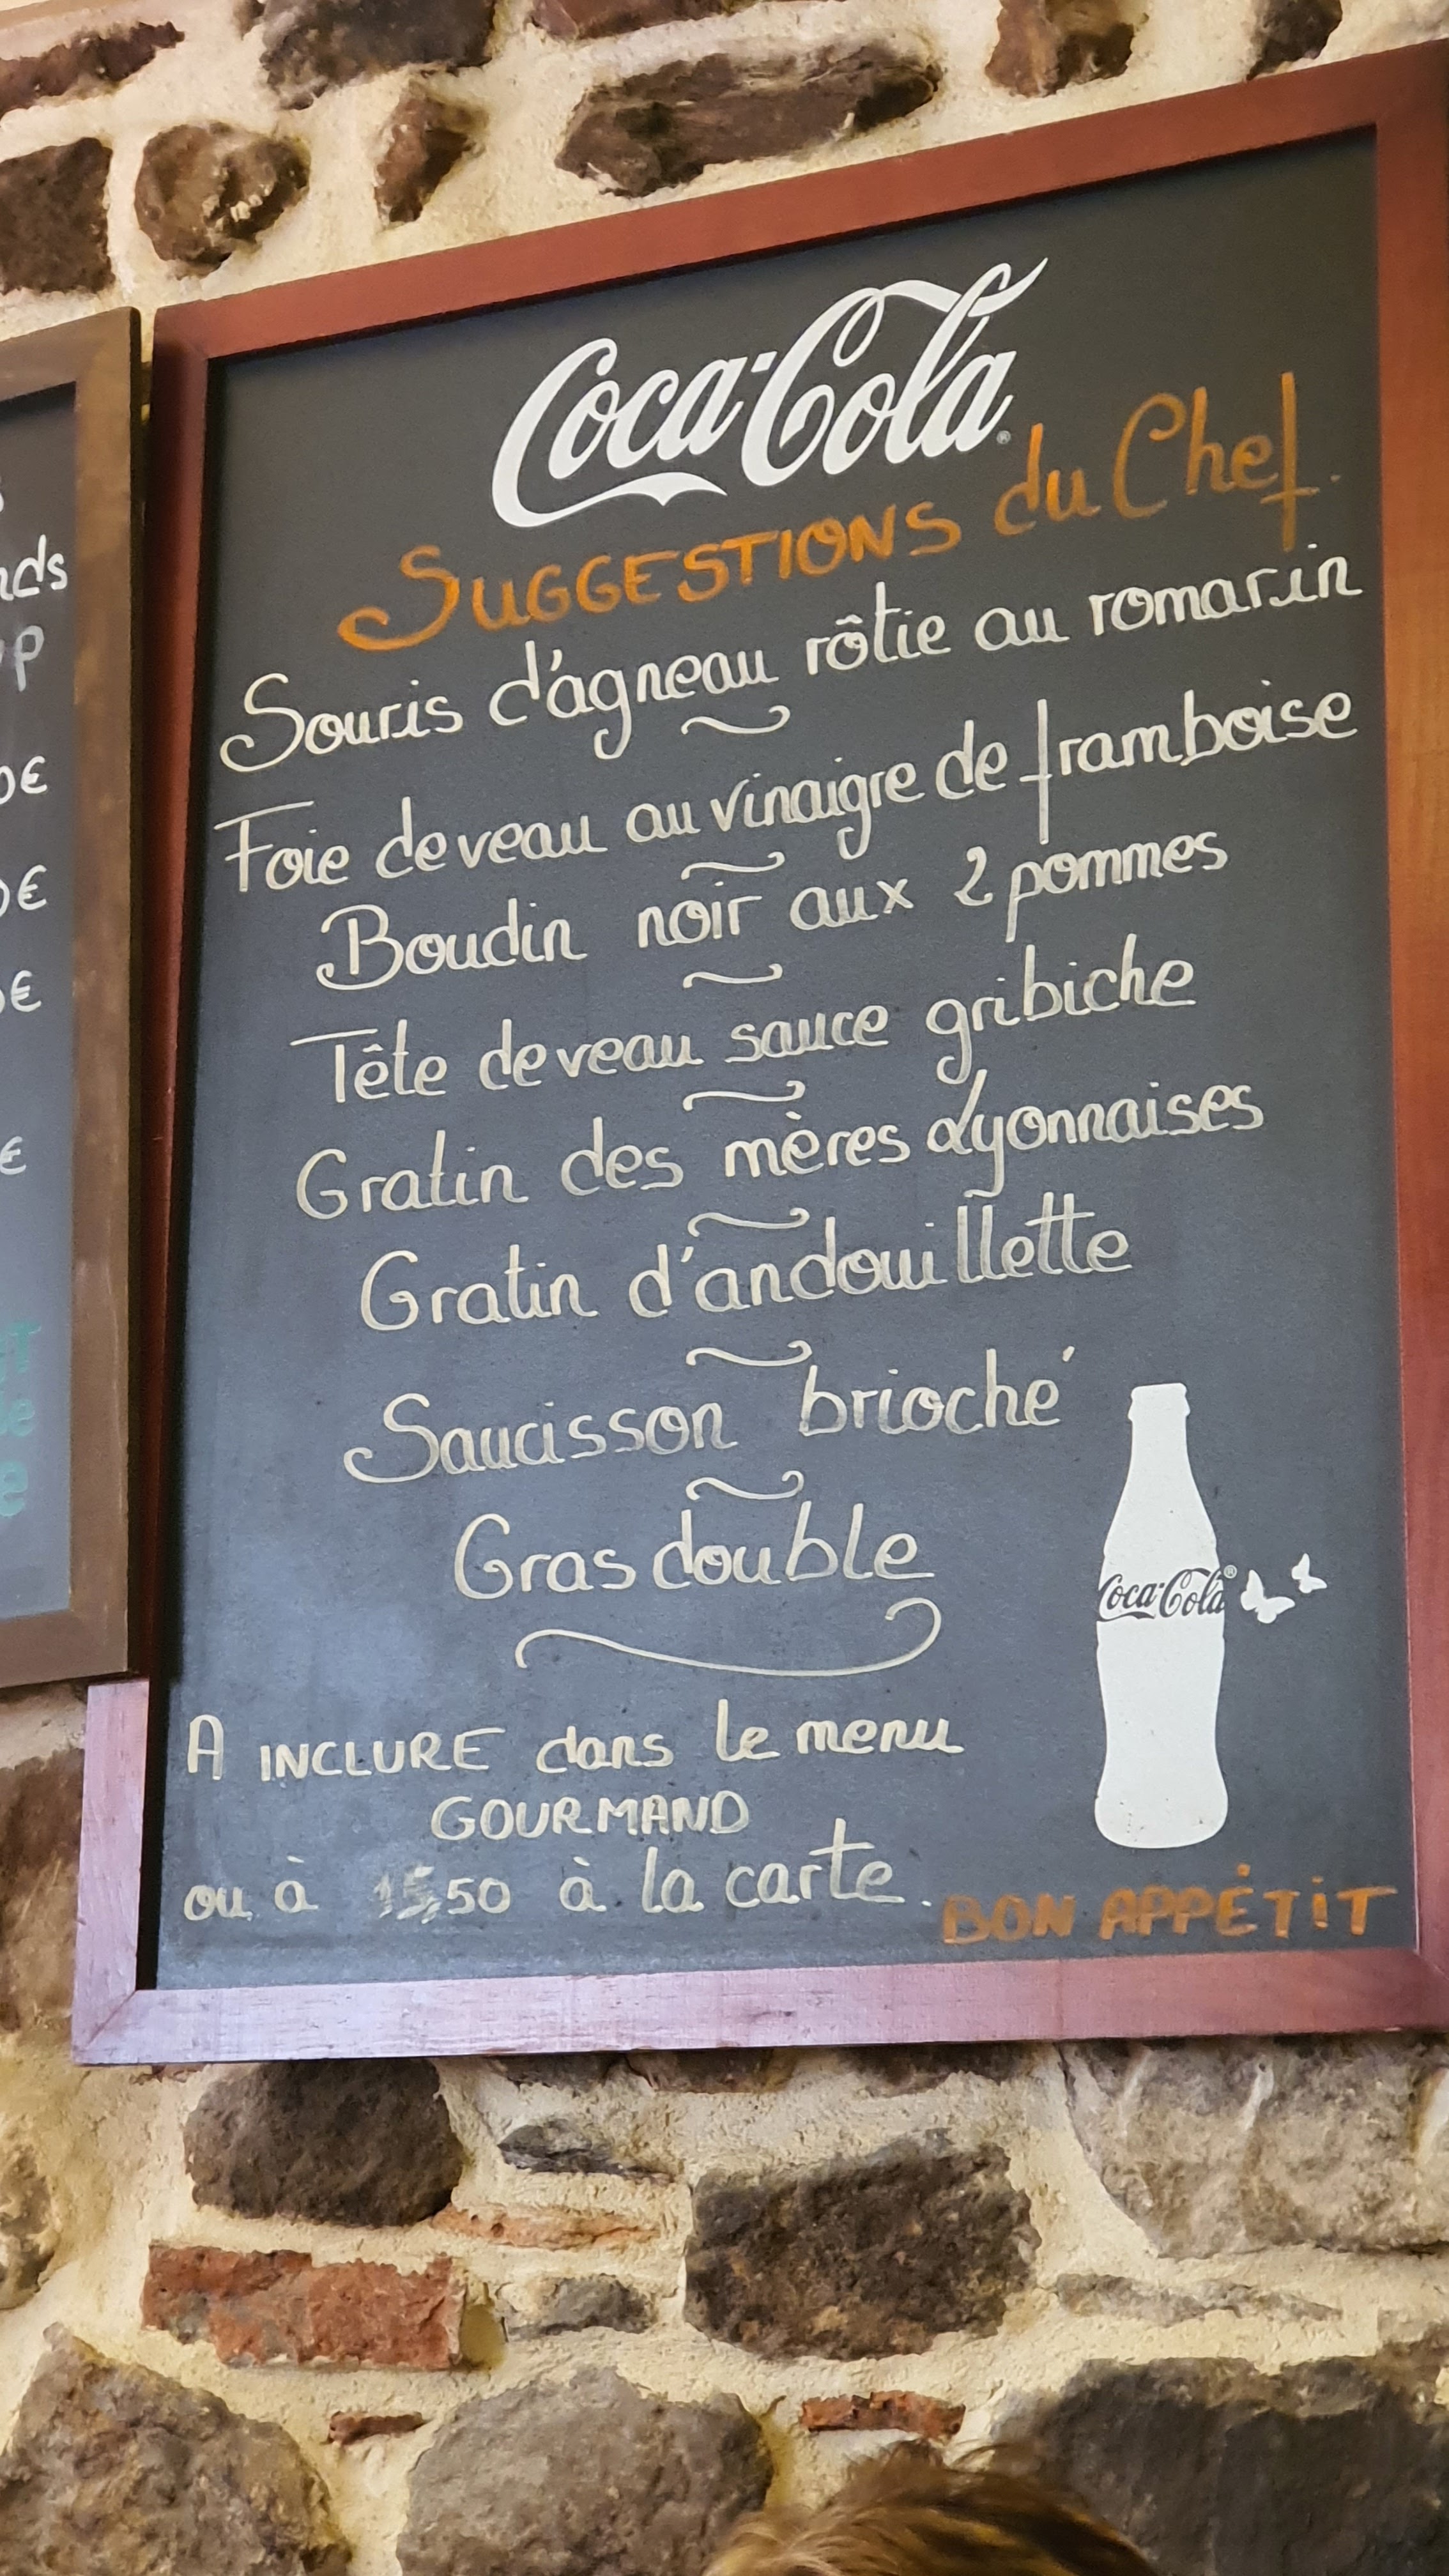 nds
€
€
€
€
Coca-Cola®
SUGGESTIONS du Chef.
Souris d'agneau rôtie au romarin
Foie de veau au vinaigre de framboise
Boudin noir aux 2 pommes
Tête de veau sauce gribiche
Gratin des mères Lyonnaises
Gratin d'andouillette
Saucisson brioché
Gras double
Coca-Cola®
A INCLURE dans le menu
GOURMAND
ou à 15,50 à la carte.
BON APPÉTIT